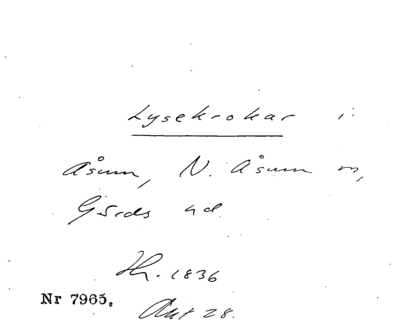 Lysekrokar i
Åsum, N. Åsum sn,
Gärds hd.
Hr. 1836
Nr 7965.
Akt 28.